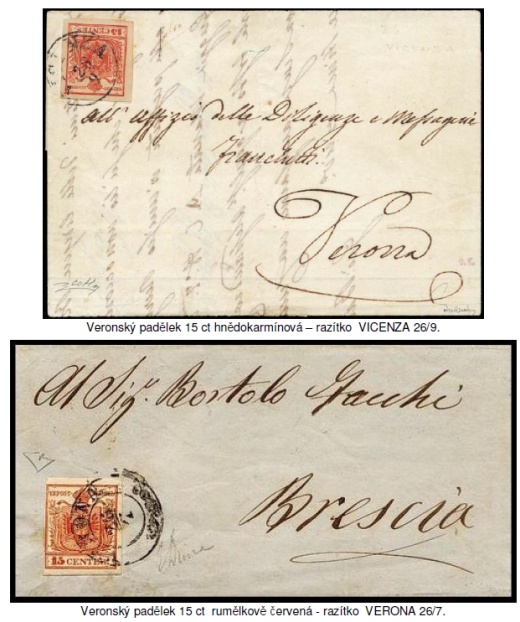 VICENZA
all' Uffizio delle Diligenze e Messagerie
Franchetti
Verona
Veronský padělek 15 ct hnědokarmínová – razítko VICENZA 26/9.
Al Sigr. Bortolo
Brescia
15 CENTES
Veronský padělek 15 ct rumělkově červená - razítko VERONA 26/7.